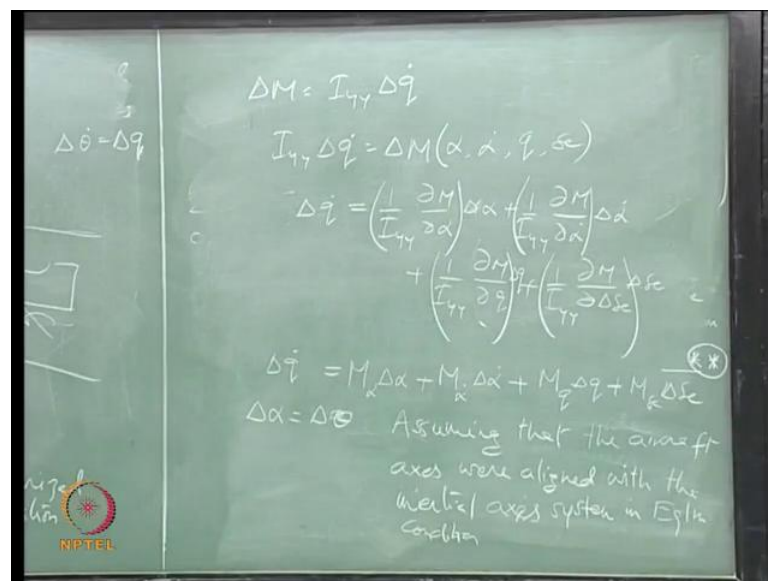 Δθ̇ = Δq
ΔM = I_yy Δq̇
I_yy Δq̇ = ΔM(α, α̇, q, δe)
Δq̇ = (1/I_yy ∂M/∂α) Δα + (1/I_yy ∂M/∂α̇) Δα̇
+ (1/I_yy ∂M/∂q) Δq + (1/I_yy ∂M/∂Δδe) Δδe
(**)
Δq̇ = M_α Δα + M_α̇ Δα̇ + M_q Δq + M_δe Δδe
Δα = Δθ Assuming that the aircraft
axes were aligned with the
inertial axes system in Eqlm
condition
NPTEL